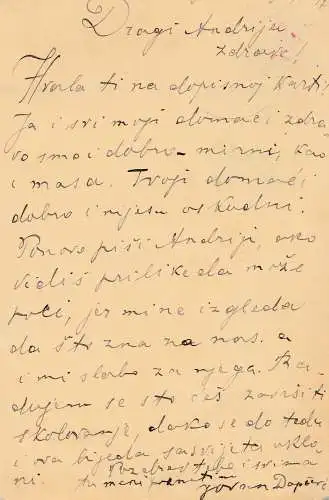 Dragi Andrija
zdravo!
Hvala ti na dopisnoj karti.
Ja i svi moji domaći zdra
vo smo i dobro - mirni, kao
i masa. Tvoji domaći
dobro i nijesu oskudni.
Ponovo piši Andriji, ako
vidiš prilike da može
poći, jer mi ne izgleda
da što zna za nas. a
i mi slabo za njega. Ra
dujem se što ćeš završiti
školovanje, dok se do tada
i ova bijeda sa svijeta uklo
ni. Pozdrav tebi i svima
tu meni
Jovan